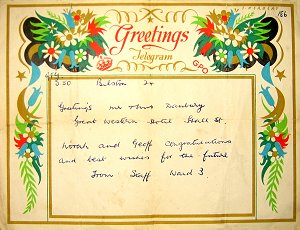 186
Greetings
Telegram
GPO
5 50 Bilston 24
Greetings mr & mrs Danbury
Great Western Hotel Stall St.
Norah and Geoff congratulations
and best wishes for the future
From Staff Ward 3